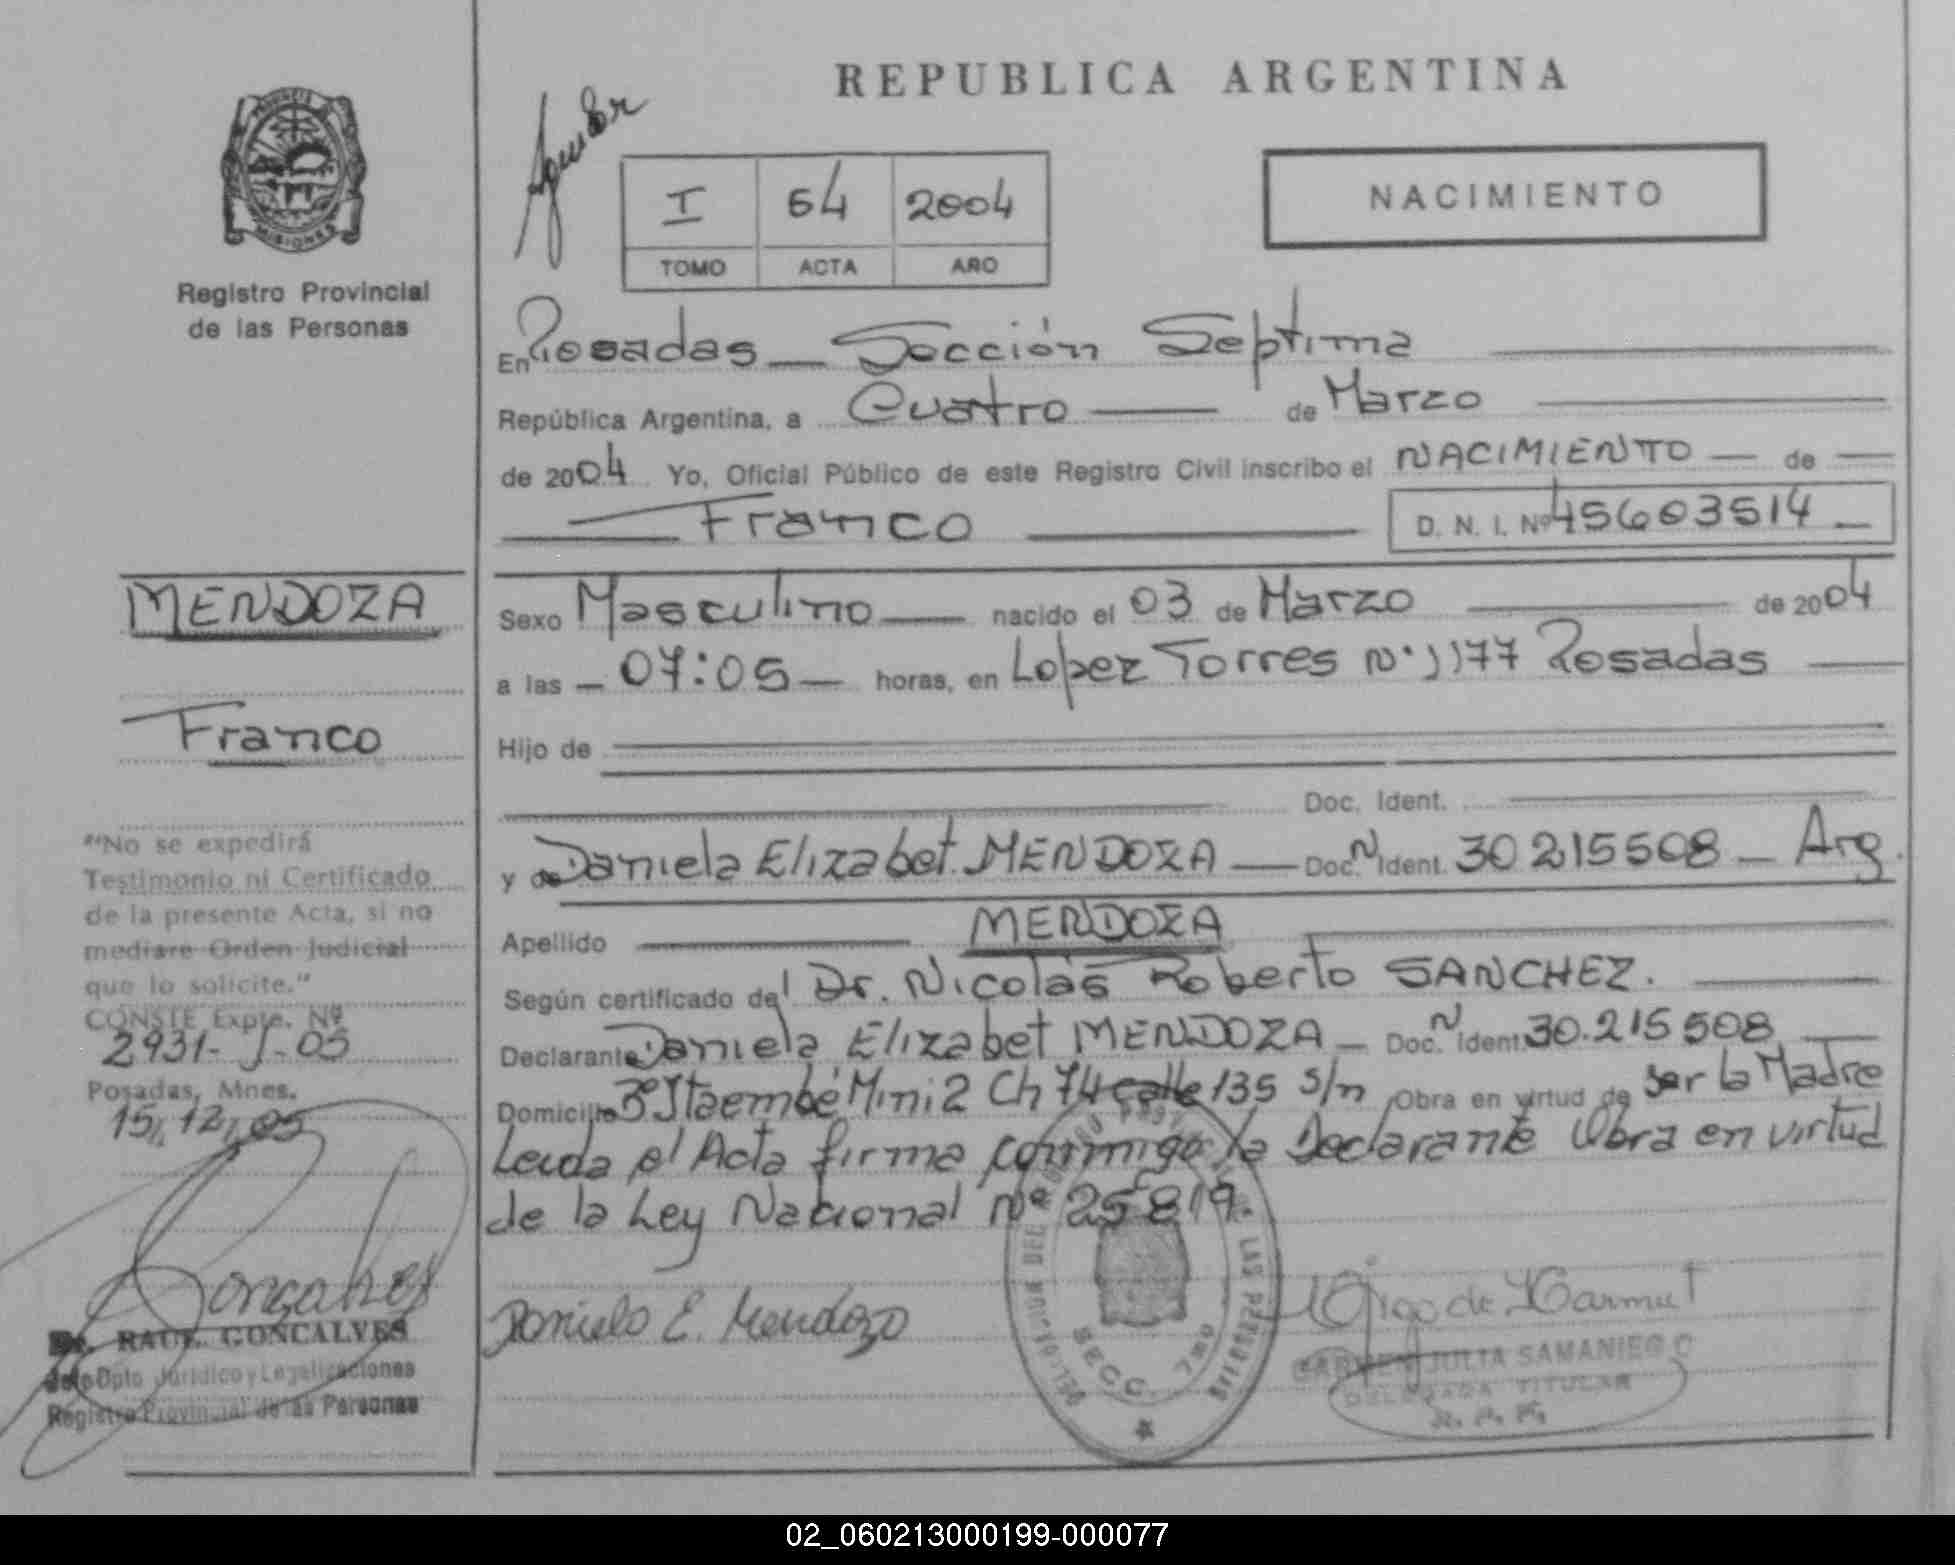 REPUBLICA ARGENTINA
MISIONES
Registro Provincial
de las Personas
I 64 2004
TOMO ACTA AÑO
NACIMIENTO
En Posadas Sección Septima
República Argentina, a Cuatro de Marzo
de 2004 Yo, Oficial Público de este Registro Civil inscribo el NACIMIENTO de
Franco D. N. I. Nº 45603514
MENDOZA
Franco
Sexo Masculino nacido el 03 de Marzo de 2004
a las 07:05 horas, en Lopez Torres Nº 1177 Posadas
Hijo de
Doc. Ident.
y de Daniela Elizabet MENDOZA Doc. N Ident. 30 215508 Arg.
Apellido MENDOZA
Según certificado del Dr. Nicolás Roberto SANCHEZ.
Declarante Daniela Elizabet MENDOZA Doc. N Ident. 30.215508
Domicilio Bº Itaembé Mini 2 Ch 74 calle 135 s/n Obra en virtud de ser la Madre
Leida el Acta firma conmigo la Declarante Obra en virtud
de la Ley Nacional Nº 25819.
"No se expedirá
Testimonio ni Certificado
de la presente Acta, si no
mediare Orden Judicial
que lo solicite."
CONSTE Expte. Nº
2931-J-05
Posadas, Mnes.
15, 12, 05
Dr. RAUL GONCALVES
Jefe Dpto Jurídico y Legalizaciones
Registro Provincial de las Personas
Daniela E. Mendoza
SECC. 7ma
CARMEN JULIA SAMANIEGO
DELEGADA TITULAR
R. P. P.
02_060213000199-000077